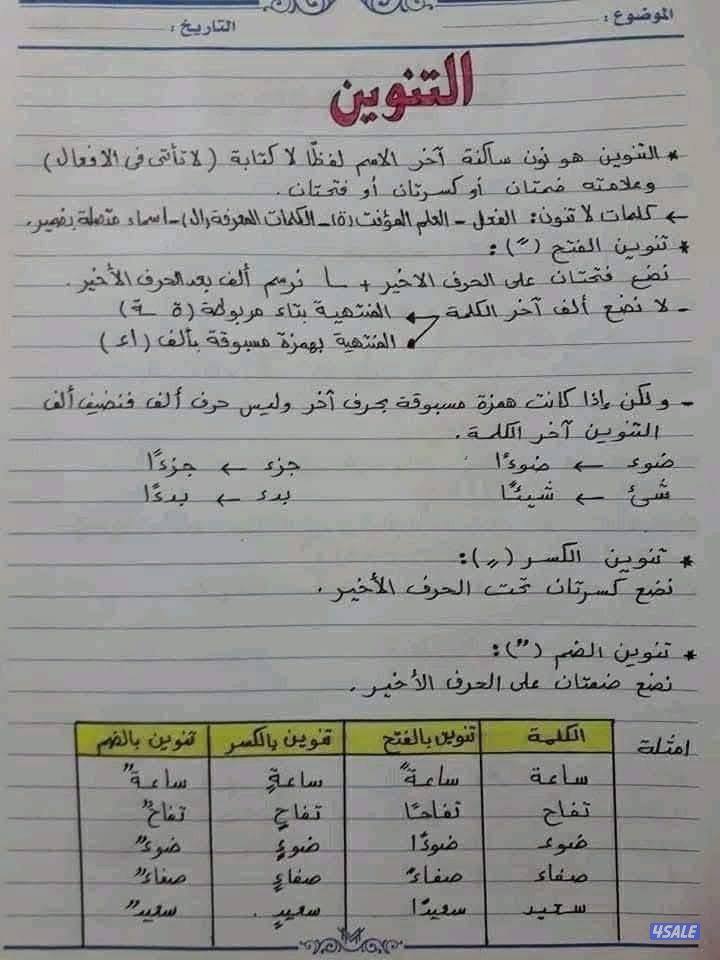 الموضوع :
التاريخ :
التنوين
* التنوين هو نون ساكنة آخر الاسم لفظًا لا كتابة (لا تأتى فى الافعال)
وعلامته ضمتان أو كسرتان أو فتحتان.
← كلمات لا تنون: الفعل - العلم المؤنث (ة) - الكلمات المعرفة (ال) - اسماء متصلة بضمير.
* تنوين الفتح (ً):
نضع فتحتان على الحرف الاخير + ا نرسم ألف بعد الحرف الأخير.
- لا نضع ألف آخر الكلمة ← المنتهية بتاء مربوطة (ة ـة)
المنتهية بهمزة مسبوقة بألف (اء)
- ولكن إذا كانت همزة مسبوقة بحرف آخر وليس حرف ألف فنضيف ألف
التنوين آخر الكلمة.
ضوء ← ضوءًا جزء ← جزءًا
شئ ← شيئًا بدء ← بدءًا
* تنوين الكسر (ٍ):
نضع كسرتان تحت الحرف الأخير.
* تنوين الضم (ٌ):
نضع ضمتان على الحرف الأخير.
امثلة
الكلمة تنوين بالفتح تنوين بالكسر تنوين بالضم
ساعة ساعةً ساعةٍ ساعةٌ
تفاح تفاحًا تفاحٍ تفاحٌ
ضوء ضوءًا ضوءٍ ضوءٌ
صفاء صفاءً صفاءٍ صفاءٌ
سعيد سعيدًا سعيدٍ . سعيدٌ
4SALE